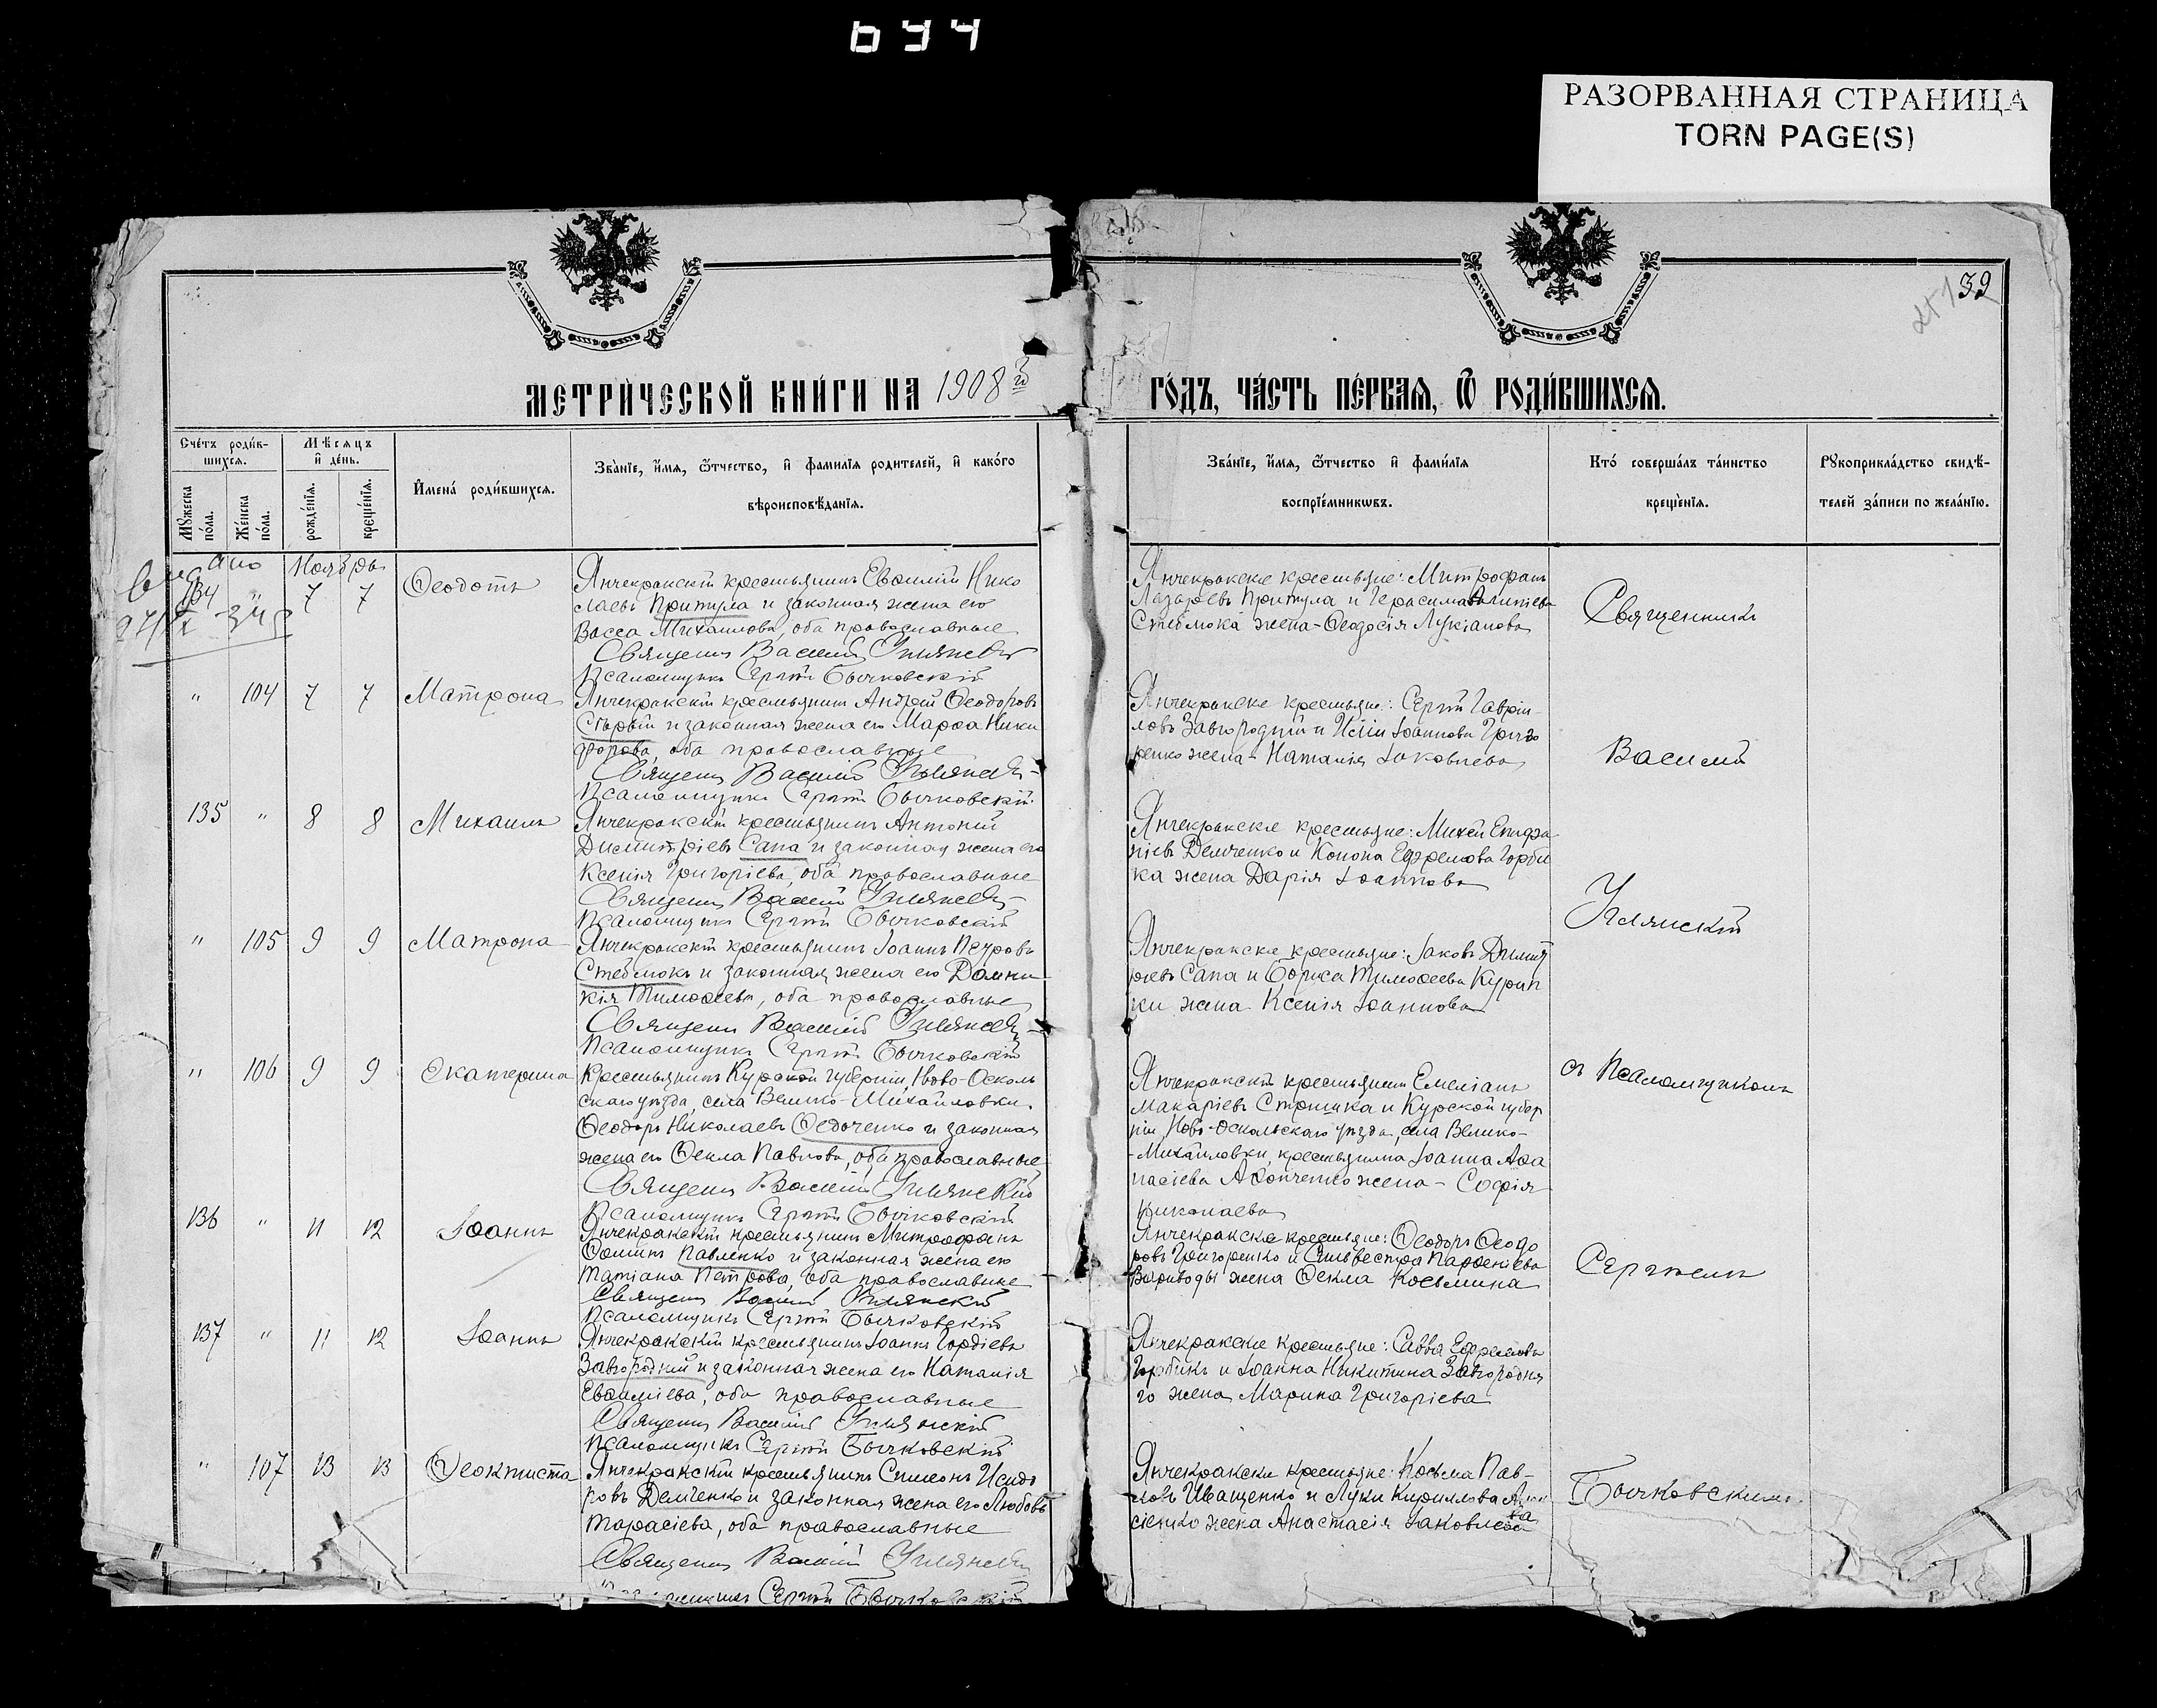 694
РАЗОРВАННАЯ СТРАНИЦА
TORN PAGE(S)
39
МЕТРИЧЕСКОЙ КНИГИ НА 1908й
ГОДЪ, ЧАСТЬ ПЕРВАЯ, Ѡ РОДИВШИХСЯ.
Счетъ родив-
шихся.
Мужеска пола.
Женска пола.
Мѣсяцъ
и день.
рожденія.
крещенія.
Имена родившихся.
Званіе, имя, ѿчество, и фамилія родителей, и какого
вѣроисповѣданія.
Званіе, имя, ѿчество и фамилія
воспріемниковъ.
Кто совершалъ таинство
крещенія.
Рукоприкладство свидѣ-
телей записи по желанію.
Ноябрь
134 " 7 7 Ѳеодотъ
Янчекракскій крестьянинъ Евѳимій Нико
лаевъ Притула и законная жена его
Васса Михаилова, оба православные
Священникъ Василій Уклянскій
Псаломщикъ Сергій Бычковскій
Янчекракскіе крестьяне: Митрофанъ
Лазаревъ Притула и Герасима
Стеблюка жена - Ѳеодосія Лукіанова
Священникъ
" 104 7 7 Матрона
Янчекракскій крестьянинъ Андрей Ѳеодоровъ
Старый и законная жена его Марѳа Ники
форова, оба православные
Священ Василій
Псаломщикъ Сергій Бычковскій
Янчекракскіе крестьяне: Сергій Гаврии-
ловъ Завгородній и Іоаннова Григо
ренко жена - Наталія Іаковлева
Василій
135 " 8 8 Михаилъ
Янчекракскій крестьянинъ Антоній
Димитріевъ Сапа и законная жена его
Ксенія Григоріева, оба православные
Священ Василій
Псаломщикъ Сергій Бычковскій
Янчекракскіе крестьяне: Михей Епифа
ніевъ Демченко и Конона Ефремова Горби
ка жена Дарія Іоаннова
" 105 9 9 Матрона
Янчекракскій крестьянинъ Іоаннъ Петровъ
Стеблюкъ и законная жена его Домни
кія Тимоѳеева, оба православные
Священ Василій
Псаломщикъ Сергій Бычковскій
Янчекракскіе крестьяне: Іаковъ Димит
ріевъ Сапа и Бориса Тимоѳеева Курип
ки жена Ксенія Іоаннова
" 106 9 9 Екатерина
Крестьянинъ Курской губерніи, Ново-Осколь
скаго уѣзда, села Велико-Михайловки
Ѳеодоръ Николаевъ Ѳедоченко и законная
жена его Ѳекла Павлова, оба православные
Священ Василій
Псаломщикъ Сергій Бычковскій
Янчекракскій крестьянинъ Емеліанъ
Макаріевъ и Курской губер
ніи Ново-Оскольскаго уѣзда, села Велико-
-Михайловки, крестьянина Іоанна Аѳа
насіева жена - Софія
Николаева
съ Псаломщикомъ
136 " 11 12 Іоаннъ
Янчекракскій крестьянинъ Митрофанъ
Ѳоминъ Павленко и законная жена его
Татіана Петрова, оба православные
Священ Василій
Псаломщикъ Сергій Бычковскій
Янчекракскіе крестьяне: Ѳеодоръ Ѳеодо
ровъ Григоренко и Сильвестра Парѳеніева
Вариводы жена Ѳекла Косьмина
Сергіемъ
137 " 11 12 Іоаннъ
Янчекракскій крестьянинъ Іоаннъ Гордіевъ
Завгородній и законная жена его Наталія
Евѳиміева, оба православные
Священ Василій
Псаломщикъ Сергій Бычковскій
Янчекракскіе крестьяне: Савва Ефремовъ
Горбикъ и Іоанна Никитина Завгородня
го жена Марина Григоріева
" 107 13 13 Ѳеоктиста
Янчекракскій крестьянинъ Симеонъ Исидо
ровъ Демченко и законная жена его Любовь
Тарасіева, оба православные
Священ Василій
Сергій Бычковскій
Янчекракскіе крестьяне: Косьма Пав-
ловъ Иващенко и Луки Кириллова
сіенко жена Анастасія Іаковлева
Бычковскимъ